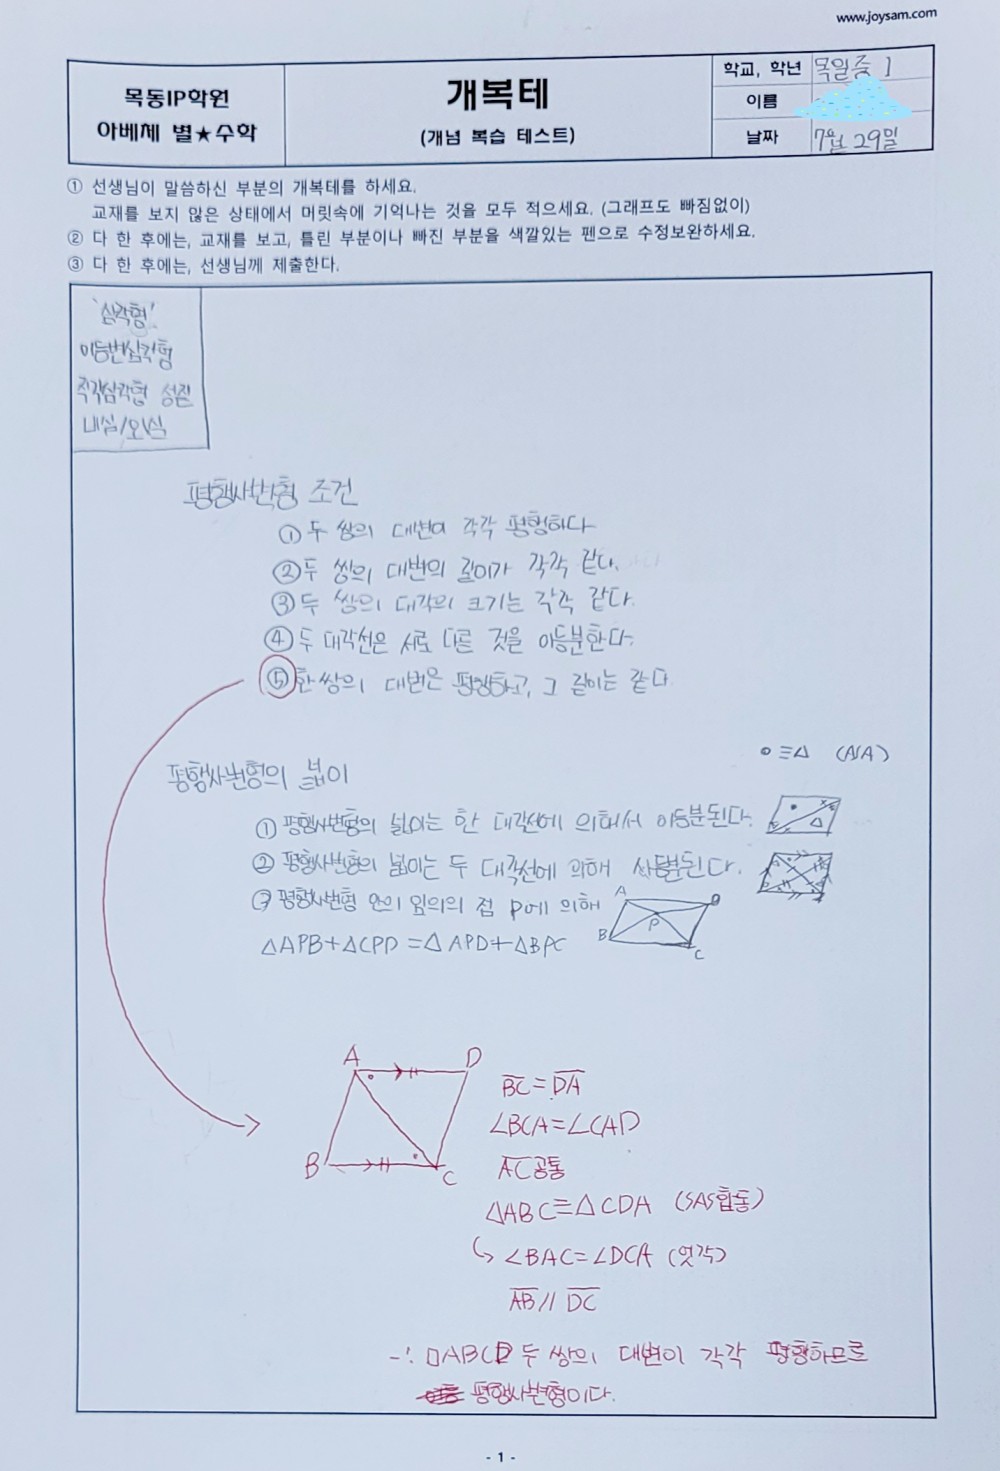 www.joysam.com
목동IP학원
아베체 별★수학
개복테
(개념 복습 테스트)
학교, 학년 목일중 1
이름
날짜 7월 29일
① 선생님이 말씀하신 부분의 개복테를 하세요.
교재를 보지 않은 상태에서 머릿속에 기억나는 것을 모두 적으세요. (그래프도 빠짐없이)
② 다 한 후에는, 교재를 보고, 틀린 부분이나 빠진 부분을 색깔있는 펜으로 수정보완하세요.
③ 다 한 후에는, 선생님께 제출한다.
'삼각형'
이등변삼각형
직각삼각형 성질
내심/외심
평행사변형 조건
① 두 쌍의 대변이 각각 평행하다
② 두 쌍의 대변의 길이가 각각 같다.
③ 두 쌍의 대각의 크기는 각각 같다.
④ 두 대각선은 서로 다른 것을 이등분한다.
⑤ 한 쌍의 대변은 평행하고, 그 길이는 같다.
평행사변형의 넓이
○≡△ (ASA)
① 평행사변형의 넓이는 한 대각선에 의해서 이등분된다.
② 평행사변형의 넓이는 두 대각선에 의해 사등분된다.
③ 평행사변형 안의 임의의 점 P에 의해
△APB+△CPD=△APD+△BPC
A
D
B
P
C
A
D
B
C
BC=DA
∠BCA=∠CAD
AC공통
△ABC≡△CDA (SAS합동)
↳ ∠BAC=∠DCA (엇각)
AB // DC
∴ □ABCD 두 쌍의 대변이 각각 평행하므로
평행사변형이다.
- 1 -